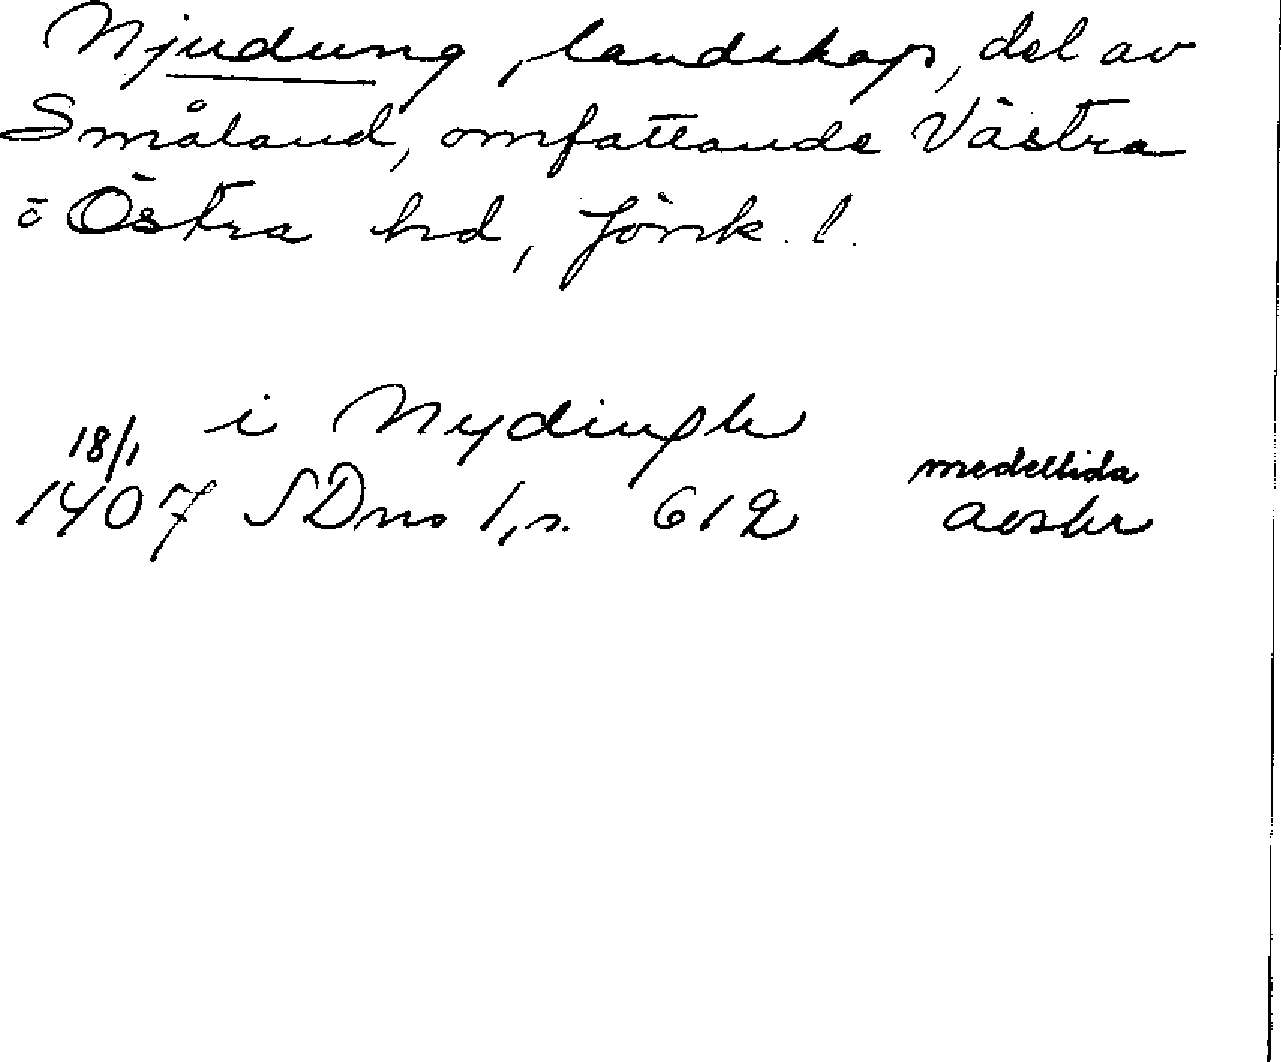 Njudung, landskap, del av
Småland, omfattande Västra
o Östra hd, Jönk. l.
i Nydingh
18/1
1407 SDns 1, s. 612
medeltida
avskr